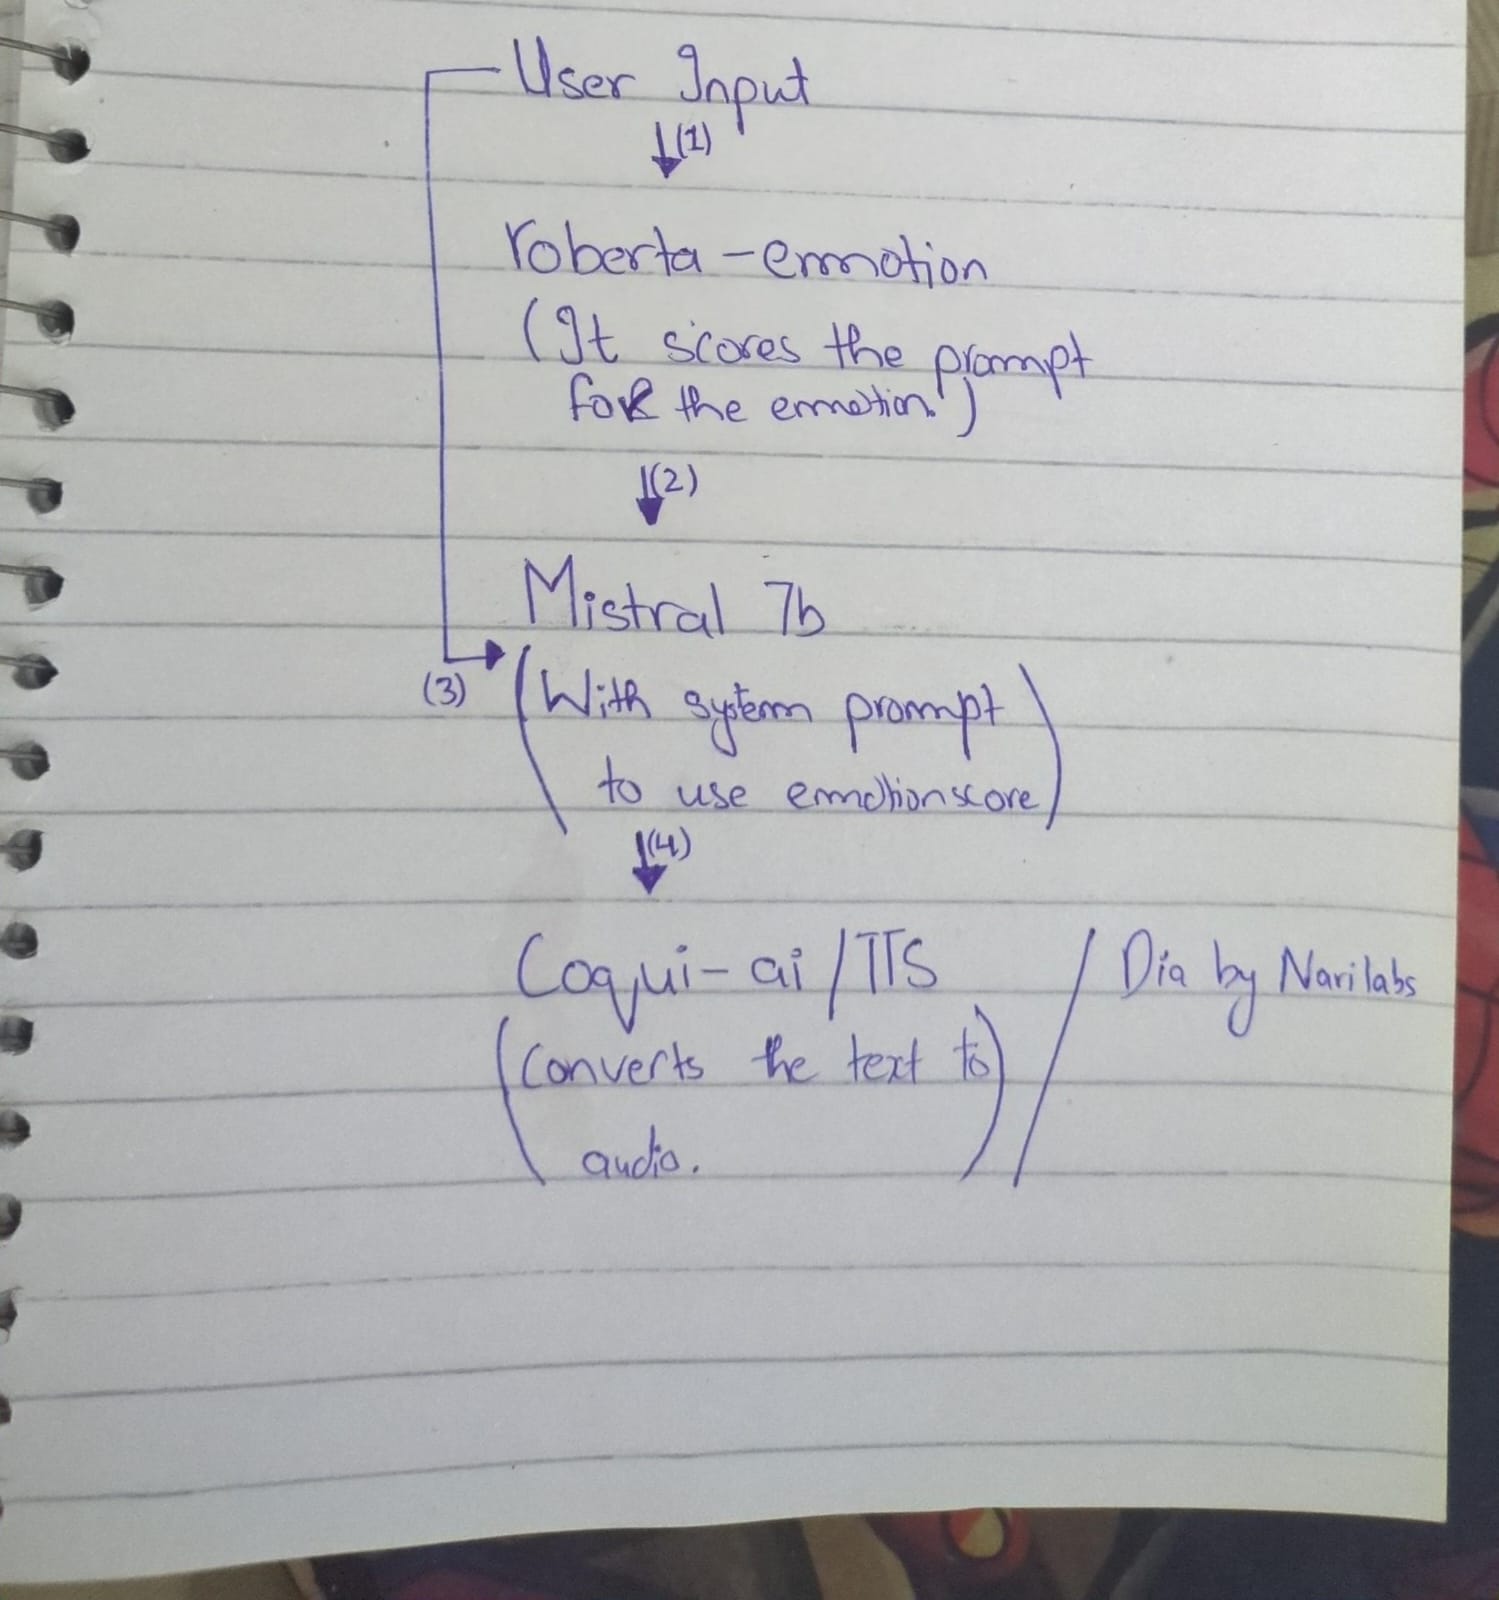 User Input
(1)
roberta - emotion
(It scores the prompt
for the emotion.)
(2)
Mistral 7b
(3)
(With system prompt
to use emotionscore)
(4)
Coqui-ai/TTS / Dia by Narilabs
(converts the text to
audio.)